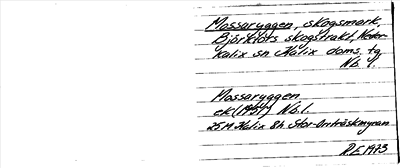 Mossaryggen, skogsmark,
Björkfors skogstrakt, Neder-
kalix sn Kalix doms. tg
Nb l.
Mossaryggen
ek (1951) Nb.l.
25M Kalix 8h. Stor-Orrträskmyran
R.E 1973